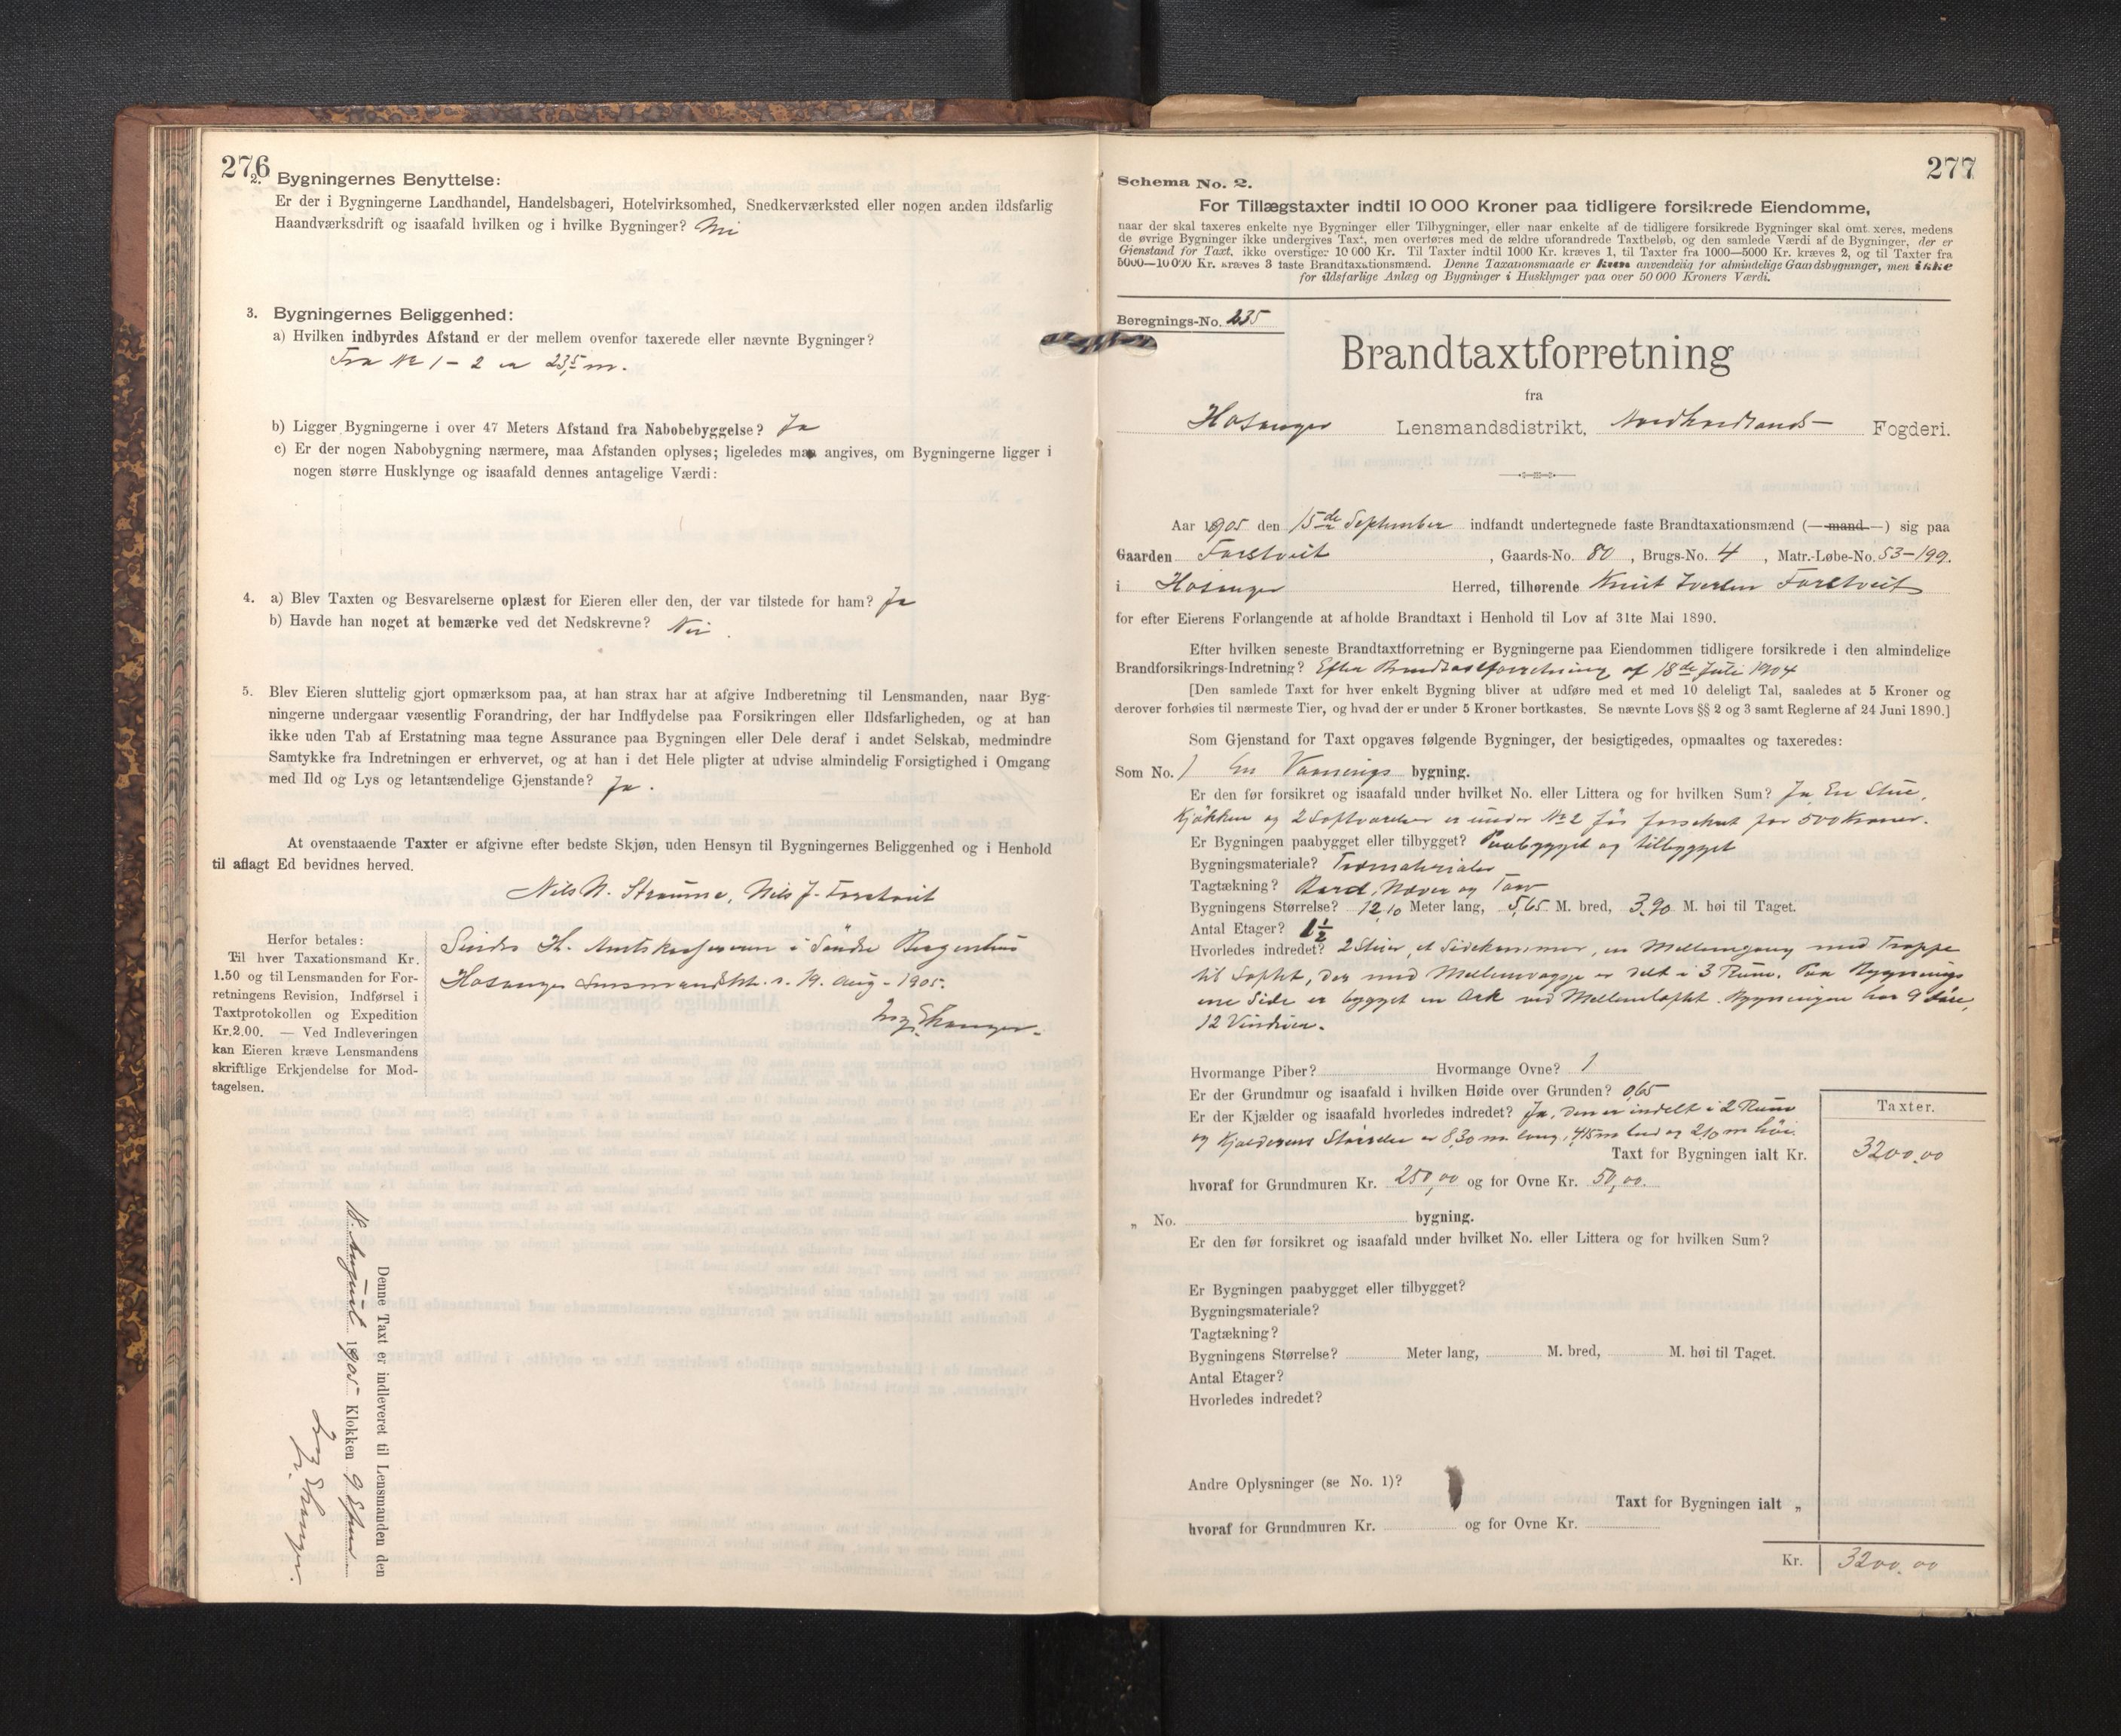 276
2. Bygningernes Benyttelse:
Er der i Bygningerne Landhandel, Handelsbageri, Hotelvirksomhed, Snedkerværksted eller nogen anden ildsfarlig
Haandværksdrift og isaafald hvilken og i hvilke Bygninger? Nei
3. Bygningernes Beliggenhed:
a) Hvilken indbyrdes Afstand er der mellem ovenfor taxerede eller nævnte Bygninger?
Fra No 1 - 2 er 23,5 m.
b) Ligger Bygningerne i over 47 Meters Afstand fra Nabobebyggelse? Ja
c) Er der nogen Nabobygning nærmere, maa Afstanden oplyses; ligeledes maa angives, om Bygningerne ligger i
nogen større Husklynge og isaafald dennes antagelige Værdi:
4. a) Blev Taxten og Besvarelserne oplæst for Eieren eller den, der var tilstede for ham? Ja
b) Havde han noget at bemærke ved det Nedskrevne? Nei.
5. Blev Eieren sluttelig gjort opmærksom paa, at han strax har at afgive Indberetning til Lensmanden, naar Byg-
ningerne undergaar væsentlig Forandring, der har Indflydelse paa Forsikringen eller Ildsfarligheden, og at han
ikke uden Tab af Erstatning maa tegne Assurance paa Bygningen eller Dele deraf i andet Selskab, medmindre
Samtykke fra Indretningen er erhvervet, og at han i det Hele pligter at udvise almindelig Forsigtighed i Omgang
med Ild og Lys og letantændelige Gjenstande? Ja.
At ovenstaaende Taxter er afgivne efter bedste Skjøn, uden Hensyn til Bygningernes Beliggenhed og i Henhold
til aflagt Ed bevidnes herved.
Nils N. Straume, Nils J. Forstveit
Herfor betales:
Til hver Taxationsmand Kr.
1.50 og til Lensmanden for For-
retningens Revision, Indførsel i
Taxtprotokollen og Expedition
Kr. 2.00. — Ved Indleveringen
kan Eieren kræve Lensmandens
skriftlige Erkjendelse for Mod-
tagelsen.
Sendes Hr. Amtskassereren i Søndre Bergenhus
Hosanger Lensmandskt. d. 19. Aug. 1905.
Denne Taxt er indleveret til Lensmanden den
18. August 1905 Klokken 9 Efm
277
Schema No. 2.
For Tillægstaxter indtil 10 000 Kroner paa tidligere forsikrede Eiendomme,
naar der skal taxeres enkelte nye Bygninger eller Tilbygninger, eller naar enkelte af de tidligere forsikrede Bygninger skal omtaxeres, medens
de øvrige Bygninger ikke undergives Taxt, men overføres med de ældre uforandrede Taxtbeløb, og den samlede Værdi af de Bygninger, der er
Gjenstand for Taxt, ikke overstiger 10 000 Kr. Til Taxter indtil 1000 Kr. kræves 1, til Taxter fra 1000—5000 Kr. kræves 2, og til Taxter fra
5000—10 000 Kr. kræves 3 faste Brandtaxationsmænd. Denne Taxationsmaade er kun anvendelig for almindelige Gaardsbygninger, men ikke
for ildsfarlige Anlæg og Bygninger i Husklynger paa over 50 000 Kroners Værdi.
Beregnings-No. 235
Brandtaxtforretning
fra
Hosanger Lensmandsdistrikt, Nordhordlands Fogderi.
Aar 1905 den 15de September indfandt undertegnede faste Brandtaxationsmænd (—mand—) sig paa
Gaarden Forstveit, Gaards-No. 80, Brugs-No. 4, Matr.-Løbe-No. 53-199.
i Hosanger Herred, tilhørende Knut Iversen Forstveit
for efter Eierens Forlangende at afholde Brandtaxt i Henhold til Lov af 31te Mai 1890.
Efter hvilken seneste Brandtaxtforretning er Bygningerne paa Eiendommen tidligere forsikrede i den almindelige
Brandforsikrings-Indretning? Efter Brandtaxtforretning af 18de Juli 1904
[Den samlede Taxt for hver enkelt Bygning bliver at udføre med et med 10 deleligt Tal, saaledes at 5 Kroner og
derover forhøies til nærmeste Tier, og hvad der er under 5 Kroner bortkastes. Se nævnte Lovs §§ 2 og 3 samt Reglerne af 24 Juni 1890.]
Som Gjenstand for Taxt opgaves følgende Bygninger, der besigtigedes, opmaaltes og taxeredes:
Som No. 1 En Vaanings bygning.
Er den før forsikret og isaafald under hvilket No. eller Littera og for hvilken Sum? Ja, En Stue,
Kjøkken og 2 Loftværelser er under No 2 før forsikret for 500 Kroner.
Er Bygningen paabygget eller tilbygget? Paabygget og tilbygget
Bygningsmateriale? Træmaterialer
Tagtækning? Bord, Næver og Torv
Bygningens Størrelse? 12,10 Meter lang, 5,65 M. bred, 3,90 M. høi til Taget.
Antal Etager? 1½
Hvorledes indredet? 2 Stuer, et Sidekammer, en Mellemgang med Trappe
til Loftet, der med Mellemvægge er delt i 3 Rum. Paa Bygnings
ene Side er bygget en Ark ved Mellemloftet. Bygningen har 9 Døre,
12 Vinduer.
Hvormange Piber? Hvormange Ovne? 1
Er der Grundmur og isaafald i hvilken Høide over Grunden? 0,65
Er der Kjælder og isaafald hvorledes indredet? Ja, den er indelt i 2 Rum
og Kjælderens Størrelse er 8,30 m lang, 4,15 m bred og 2,10 m høi.
Taxter.
Taxt for Bygningen ialt Kr. 3200,00
hvoraf for Grundmuren Kr. 250,00 og for Ovne Kr. 50,00.
„ No. bygning.
Er den før forsikret og isaafald under hvilket No. eller Littera og for hvilken Sum?
Er Bygningen paabygget eller tilbygget?
Bygningsmateriale?
Tagtækning?
Bygningens Størrelse? Meter lang, M. bred, M. høi til Taget.
Antal Etager?
Hvorledes indredet?
Andre Oplysninger (se No. 1)?
Taxt for Bygningen ialt „
hvoraf for Grundmuren Kr. og for Ovne Kr.
Kr. 3200,00